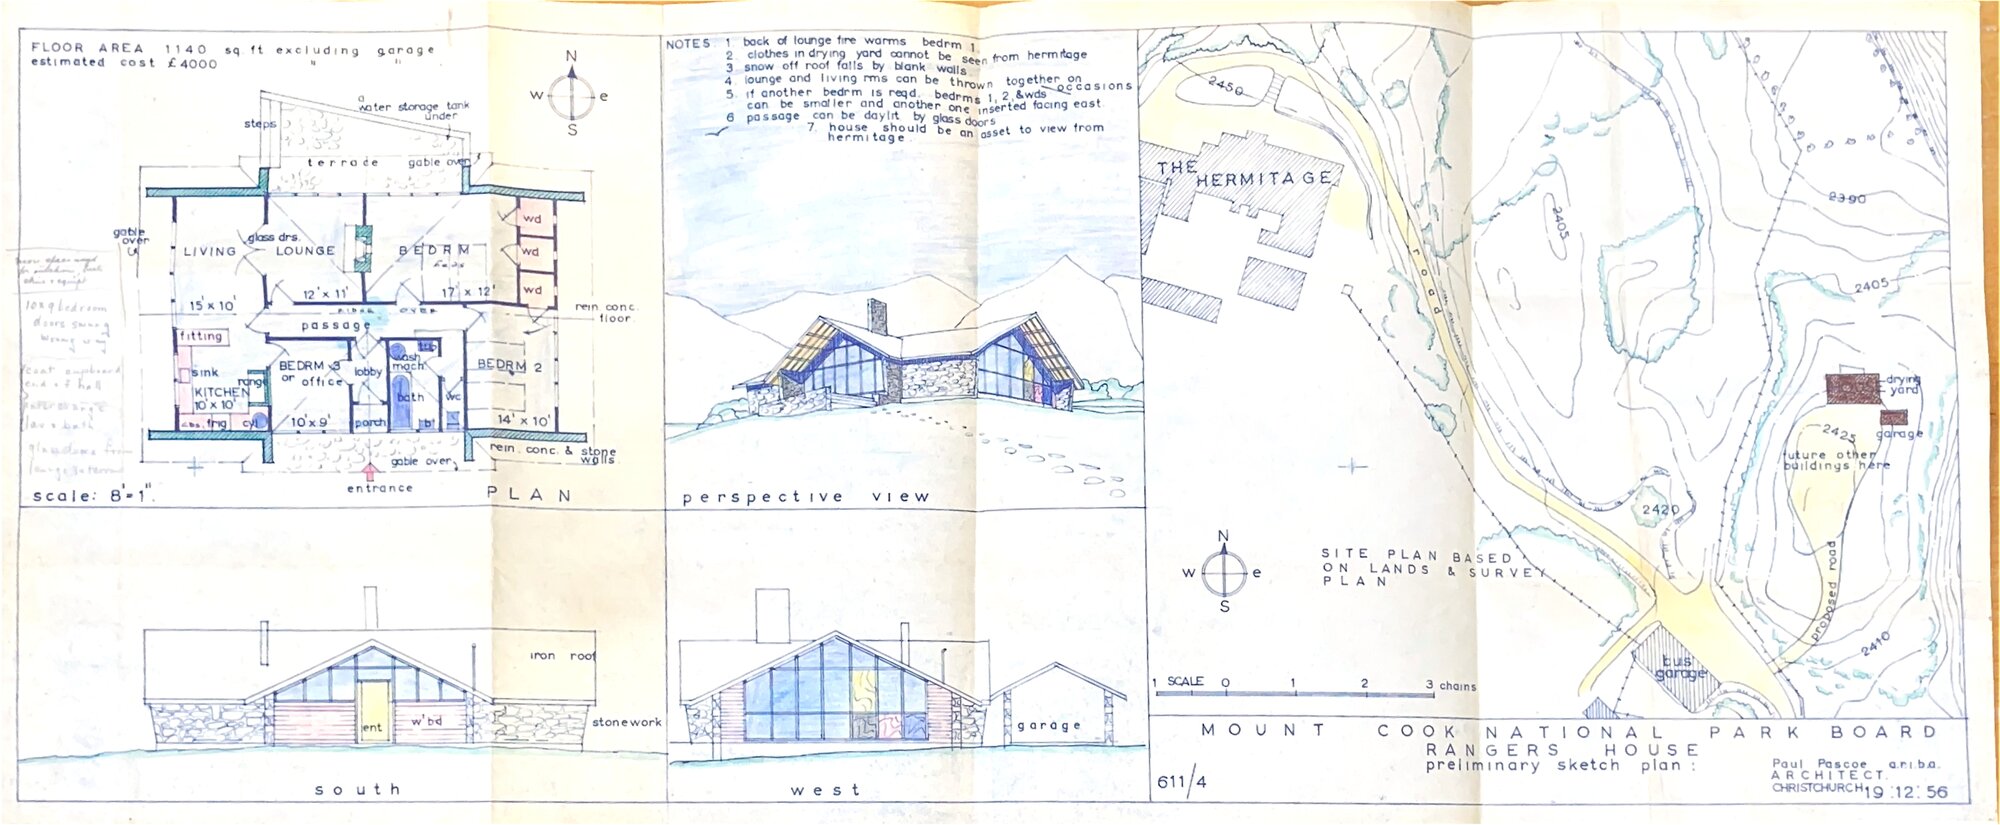 FLOOR AREA 1140 sq.ft excluding garage
estimated cost £4000 " " .
N
w e
S
a
water storage tank
under
steps
terrade
gable over
gable
over
glass drs.
LIVING
LOUNGE
BEDRM
wd
wd
wd
15' x 10'
12' x 11'
17' x 12'
RIDGE OVER
passage
rein conc.
floor.
fitting
sink
range
KITCHEN
10' x 10'
cbs. frig cyl
BEDRM 3
or office
10' x 9'
lobby
porch
tub
wash
mach
bath
b
wc
BEDRM 2
14' x 10'
rein. conc. & stone
walls
gable over
entrance
long bedroom
doors swung
wrong way
coat cupboard
end of hall
interchange
lav & bath
glass doors from
scale: 8'=1".
PLAN
NOTES: 1 back of lounge fire warms bedrm 1.
2 clothes in drying yard cannot be seen from hermitage
3 snow off roof falls by blank walls
4 lounge and living rms can be thrown together on occasions
5. if another bedrm is reqd. bedrms 1, 2, & wds
can be smaller and another one inserted facing east
6 passage can be daylit by glass doors
7. house should be an asset to view from
hermitage.
perspective view
iron roof
ent
w'bd
stonework
south
garage
west
2450
THE
HERMITAGE
road
2405
2390
2405
drying
yard
garage
2425
future other
buildings here
2420
proposed road
2410
bus
garage
N
w e
S
SITE PLAN BASED
ON LANDS & SURVEY
PLAN
1 SCALE 0 1 2 3 chains
MOUNT COOK NATIONAL PARK BOARD
RANGERS HOUSE
preliminary sketch plan:
611/4
Paul Pascoe a.r.i.b.a.
ARCHITECT.
CHRISTCHURCH 19:12:56